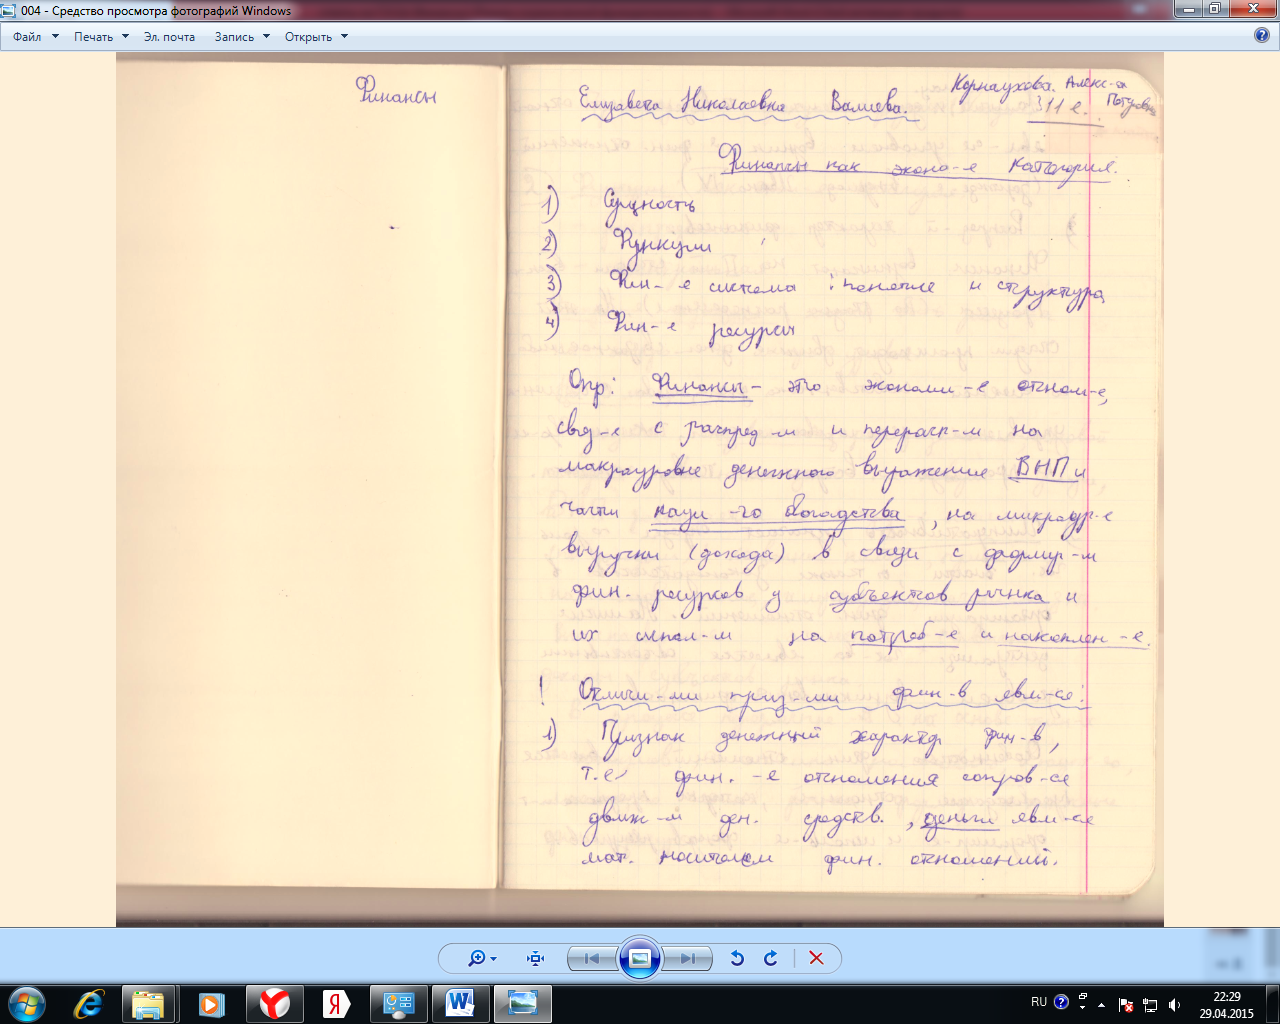 004 - Средство просмотра фотографий Windows
Файл Печать Эл. почта Запись Открыть
Финансы
Корнаухова. Алекс-а
Петровна
Елизавета Николаевна Валиева. 311 е.
Финансы как эконо-я категория.
1) Сущность
2) Функции
3) Фин-я система: понятие и структура
4) Фин-е ресурсы
Опр: Финансы - это экономи-е отнош-е,
связ-е с распред-м и перерасп-м на
макроуровне денежного выражение ВНП и
части наци-го богадства, на микроур-е
выручки (дохода) в связи с формир-м
фин. ресурсов у субъектов рынка и
их испол-м на потреб-е и накоплен-е.
! Отличи-ми приз-ми фин-в явл-ся:
1) Признак денежный характер фин-в,
т.е. фин.-е отношения сопров-ся
движ-м ден. средств., деньги явл-ся
мат. носителем фин. отношений.
RU
22:29
29.04.2015